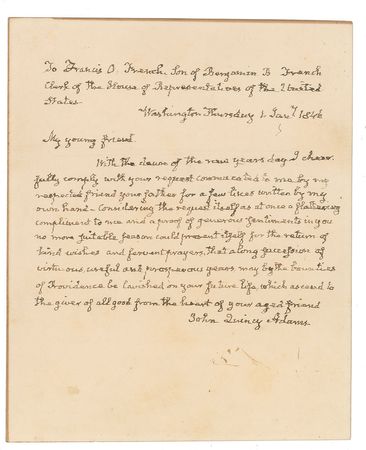 To Francis O. French. Son of Benjamin B French
Clerk of the House of Representatives of the United
States.
Washington Thursday 1 Jany 1846
My young friend.
With the dawn of the new years day I cheer-
fully comply with your request communicated to me by my
respected friend your father for a few lines written by my
own hand - Considering the request itself as at once a flattering
compliment to me and a proof of generous sentiments in you
no more suitable season could present itself for the return of
kind wishes and fervent prayers, that a long succession of
virtuous, useful and prosperous years, may by the bounties
of Providence be lavished on your future life, which ascend to
the giver of all good from the heart of your aged friend
John Quincy Adams.